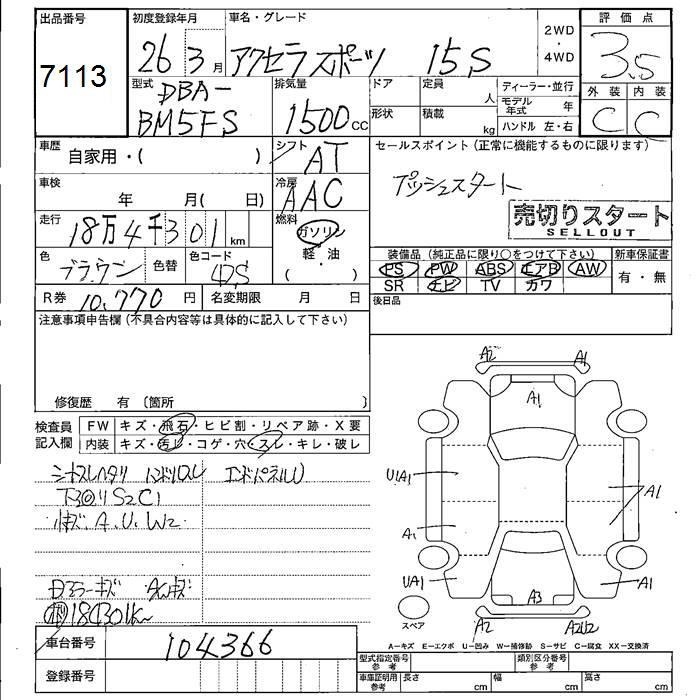 出品番号
7113
初度登録年月
26 3月
車名・グレード
アクセラスポーツ 15S
2WD
・
4WD
評価点
3.5
外装 内装
C C
型式
DBA-
BM5FS
排気量
1500cc
ドア
形状
定員
人
積載
kg
ディーラー・並行
モデル年式 年
ハンドル 左・右
車歴
自家用・( )
シフト
AT
セールスポイント(正常に機能するものに限ります)
プッシュスタート
売切りスタート
SELLOUT
車検
年 月( 日)
冷房
AAC
走行
18万4千301km
燃料
ガソリン
軽・油
( )
色
ブラウン
色替
色コード
42S
装備品(純正品に限り○をつけて下さい)
PS PW ABS エアB AW
SR ナビ TV カワ
新車保証書
有・無
R券 10,770円
名変期限 月 日
後日品
注意事項申告欄(不具合内容等は具体的に記入して下さい)
修復歴 有(箇所 )
検査員
記入欄
FW キズ・飛石・ヒビ割・リペア跡・X要
内装 キズ・汚れ・コゲ・穴・スレ・キレ・破レ
シートスレヘタリ ハンドルスレ エンドパネルU
S2C1
キズ.A.U.W2
Dミラーキズ
184301k
車台番号
104366
登録番号
A2 A1
A1
U1A1
A1
A1
UA1
A1
A3
A2
A2U2
スペア
A=キズ E=エクボ U=凹み W=補修跡 S=サビ C=腐食 XX=交換済
型式指定番号
参考
類別区分番号
参考
車庫証明用
参考
長さ cm
幅 cm
高さ cm